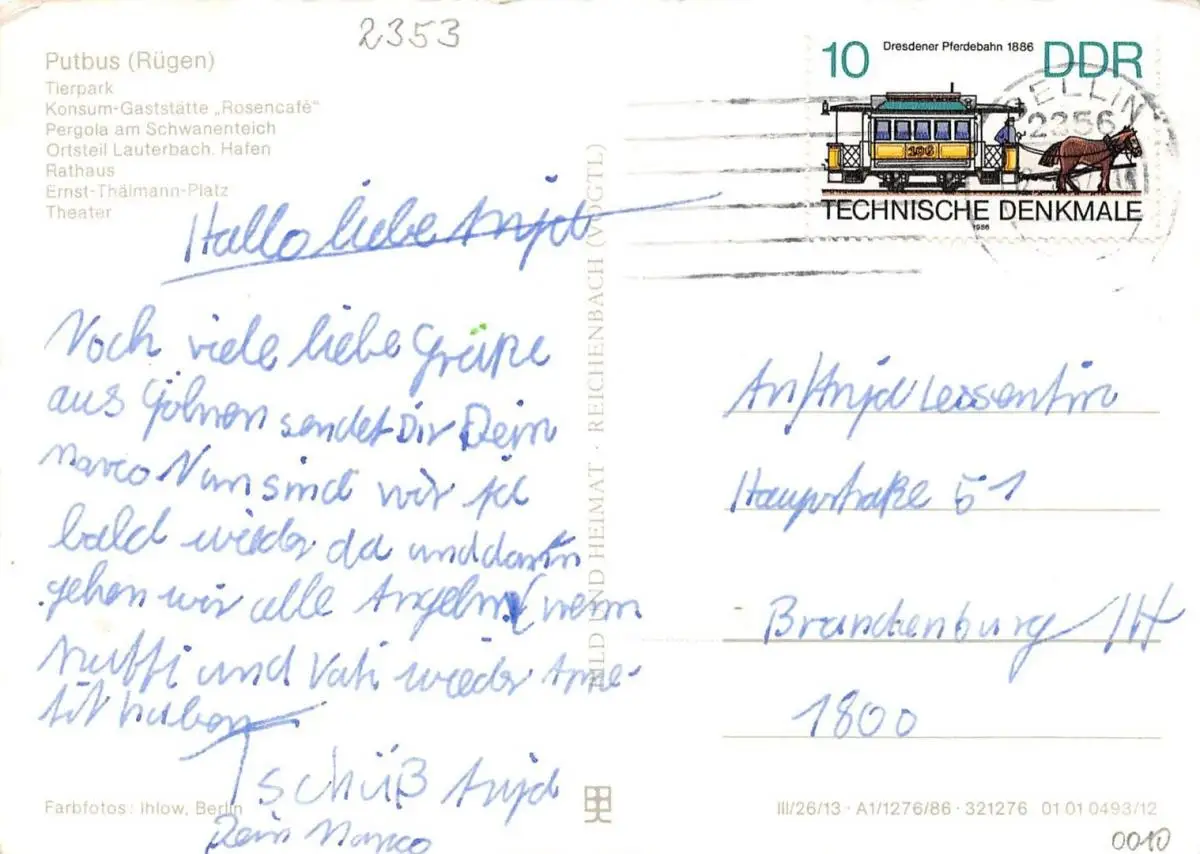 2353
Putbus (Rügen)
Tierpark
Konsum-Gaststätte „Rosencafé"
Pergola am Schwanenteich
Ortsteil Lauterbach. Hafen
Rathaus
Ernst-Thälmann-Platz
Theater
Hallo liebe Anja
Noch viele liebe Grüße
aus sendet Dir Dein
Marco Nun sind wir
bald wieder da und dann
gehen wir alle Angeln wenn
Mutti und Vati wieder
haben
Tschüß Anja
Dein Marco
Farbfotos: Ihlow, Berlin
BILD UND HEIMAT · REICHENBACH (VOGTL)
10 Dresdener Pferdebahn 1886 DDR
106
TECHNISCHE DENKMALE
1986
SELLIN
2356
An/Anja
Hauptstraße 51
Brandenburg/H
1800
III/26/13 · A1/1276/86 · 321276 01 01 0493/12
0010